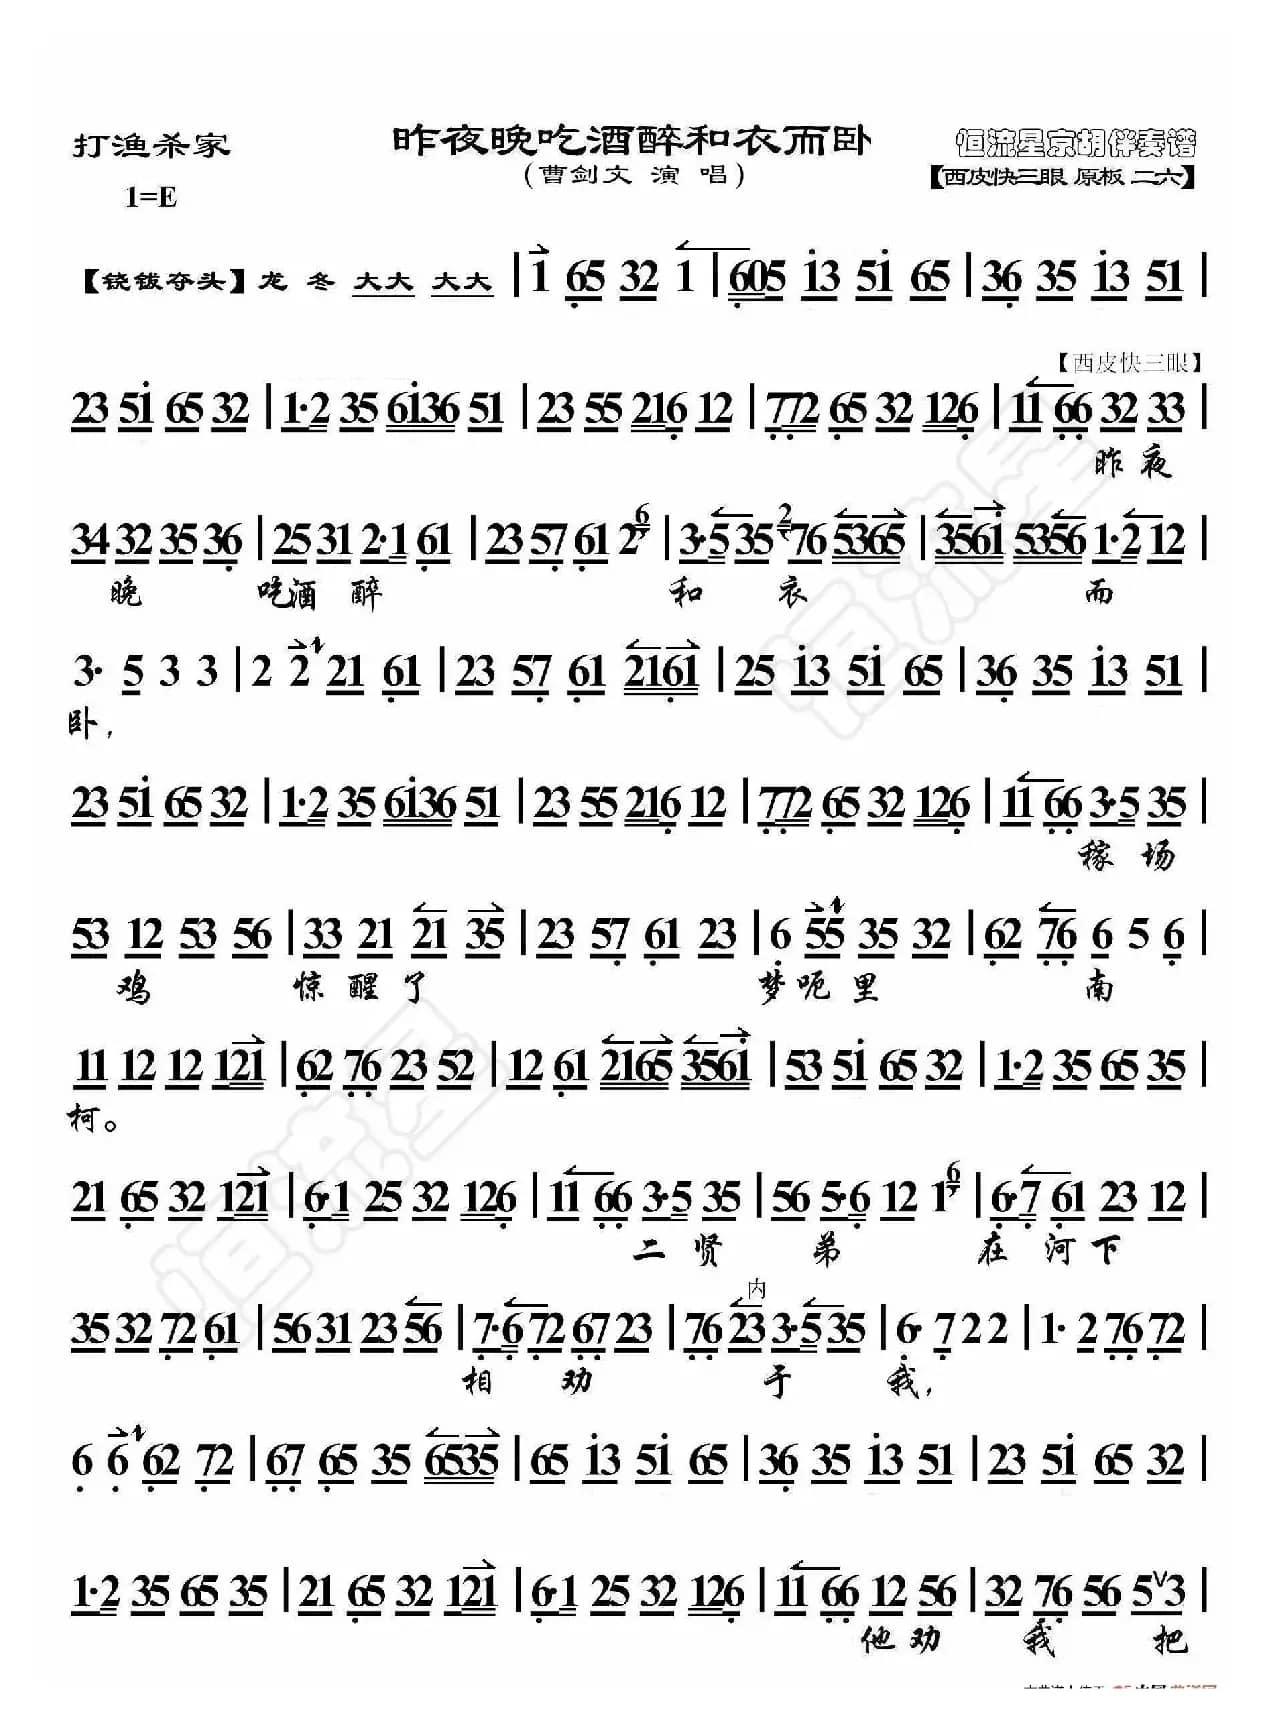 打渔杀家
昨夜晚吃酒醉和衣而卧
恒流星京胡伴奏谱
(曹剑文 演 唱)
【西皮快三眼 原板 二六】
1=E
【铙钹夺头】龙 冬 大大 大大 | 1 65 32 1 | 605 i3 5i 65 | 36 35 i3 51 |
【西皮快三眼】
23 5i 65 32 | 1·2 35 6i36 51 | 23 55 216 12 | 772 65 32 126 | 11 66 32 33 |
昨夜
34 32 35 36 | 25 31 2·1 61 | 23 57 61 2 6 | 3·5 35 2 76 5365 | 356i 5356 1·2 12 |
晚 吃酒 醉 和 衣 而
3· 5 3 3 | 2 2 21 61 | 23 57 61 2161 | 25 i3 5i 65 | 36 35 i3 51 |
卧,
23 5i 65 32 | 1·2 35 6i36 51 | 23 55 216 12 | 772 65 32 126 | 11 66 3·5 35 |
稼 场
53 12 53 56 | 33 21 21 35 | 23 57 61 23 | 6 55 35 32 | 62 76 6 5 6 |
鸡 惊 醒 了 梦呃里 南
11 12 12 121 | 62 76 23 52 | 12 61 2165 356i | 53 5i 65 32 | 1·2 35 65 35 |
柯。
21 65 32 121 | 6·1 25 32 126 | 11 66 3·5 35 | 56 5·6 12 1 6 | 6·7 61 23 12 |
二 贤 弟 在 河 下
内
35 32 72 61 | 56 31 23 56 | 7·6 72 67 23 | 76 23 3·5 35 | 6· 7 2 2 | 1· 2 76 72 |
相 劝 于 我,
6 6 62 72 | 67 65 35 6535 | 65 i3 5i 65 | 36 35 i3 51 | 23 5i 65 32 |
1·2 35 65 35 | 21 65 32 121 | 6·1 25 32 126 | 11 66 12 56 | 32 76 56 5∨3 |
他 劝 我 把
恒流星
恒流星